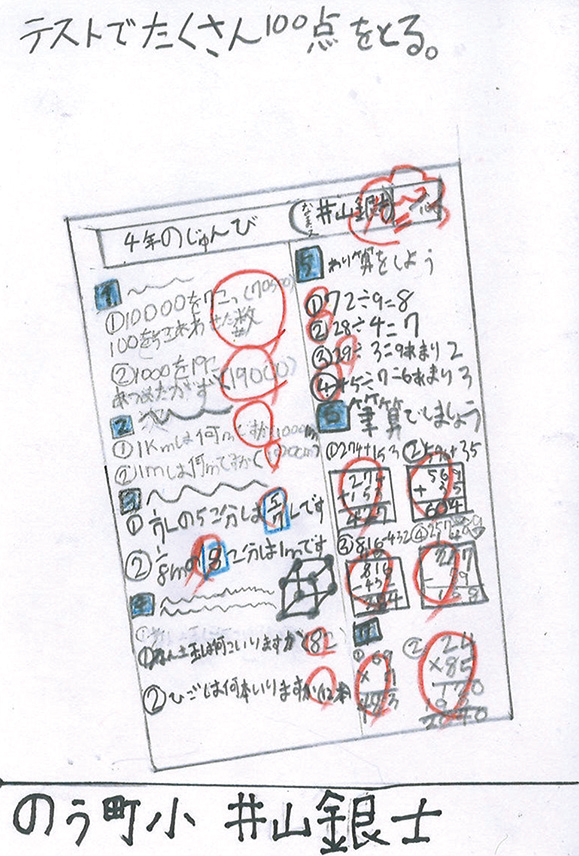 テストでたくさん100点をとる。
4年のじゅんび
なまえ 井山銀士
1
①10000を7こ、(70500)
100を5こあわせた数
②1000を19こ
あつめたかず(19000)
2
①1Kmは何mですか(1000m)
②1mは何cmですか(100cm)
3
①1/7Lの5こ分は5/7Lです
②1/8mの8こ分は1mです
4
①ねん土玉は何こいりますか(8こ)
②ひごは何本いりますか(12本)
5 わり算をしよう
①72÷9=8
②28÷4=7
③29÷3=9あまり2
④45÷7=6あまり3
6 筆算でしましょう
①274+153
274
+153
427
②569+35
569
+35
604
③816-432
816
-432
384
④257
①
②24
×85
120
192
2040
のう町小 井山銀士